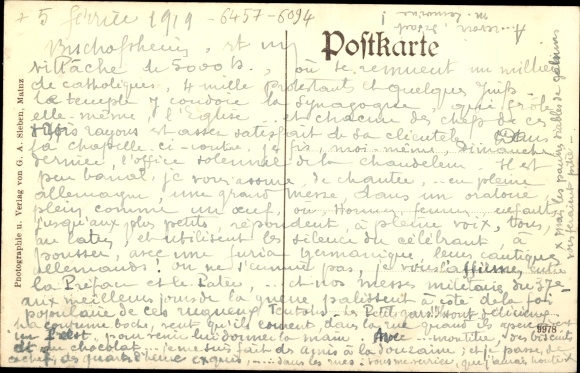 5 février 1919 - 6457 - 6094
Postkarte
Bischofsheim, est un
village de 5000 h., où se remuent un millier
de catholiques, 4 mille protestants et quelques juifs
Le temple y coudoie la Synagogue, qui frôle
elle-même, l'Eglise et chacun des chefs de ces
rayons est assez satisfait de sa clientèle. Dans
la chapelle ci-contre, j'ai moi-même, dimanche
dernier, l'office solennel de la chandeleur. Il est
peu banal, je vous assure de chanter, en pleine
allemagne, une grand messe, dans un oratoire
plein comme un œuf, où, Hommes, femmes, enfants,
jusqu'aux plus petits, répondent, à pleine voix, tous,
au latin, et utilisent les silences du célébrant, à
pousser, avec une furia germanique, leurs cantiques
allemands! on ne s'ennuie pas, je vous affirme, entre
la Préface et le Pater et nos messes militaires
aux meilleurs jours de la guerre, palissent à côté de la foi
populaire de ces rugueux Teutons. Les Petits gars
la coutume boche, veut qu'ils courent dans la rue quand ils
un Prêtre, pour venir lui donner la main. Avec des biscuits
et du chocolat, je me suis fait des amis à la douzaine, et je passe, de
des quarts d'heure exquis, dans les rues
mais les pauvres diables de
vous feraient pitié
Photographie u. Verlag von G. A. Sieben, Mainz
9978